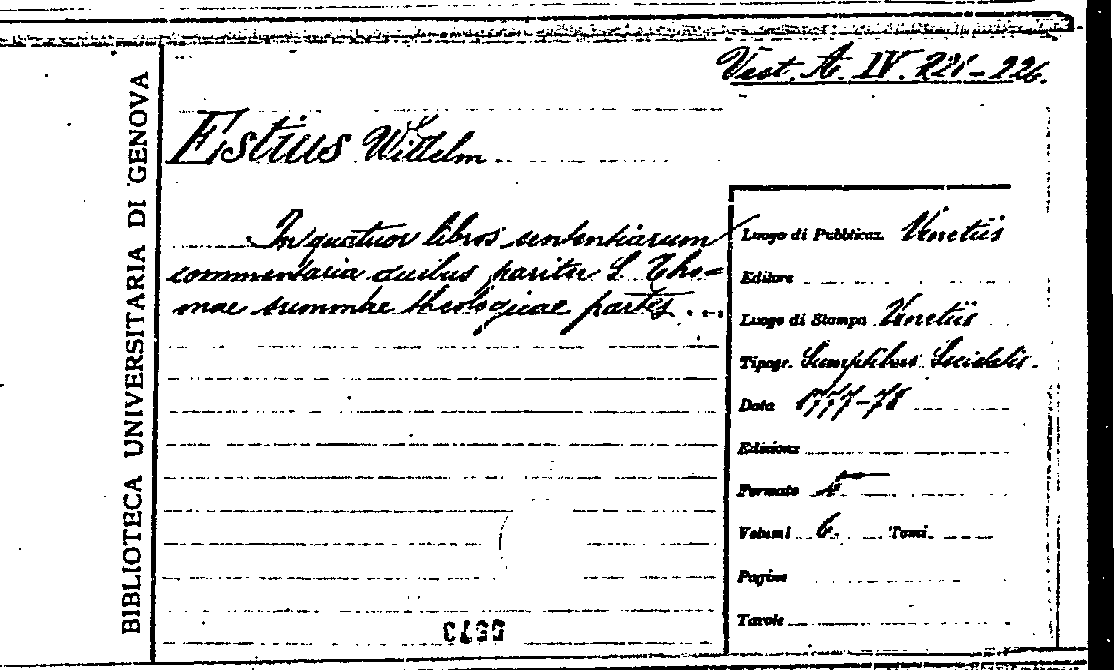 Vest. A. IV. 221-226.
BIBLIOTECA UNIVERSITARIA DI GENOVA
Estius Wilhelm
In quatuor libros sententiarum
commentaria quibus pariter S. Tho=
mae summae theologicae partes ...
Luogo di Pubblicaz. Venetiis
Editore
Luogo di Stampa Venetiis
Tipogr. Sumptibus Societatis.
Data 1777-78
Edizione
Formato
Volumi 6. Tomi
Pagine
Tavole
5573